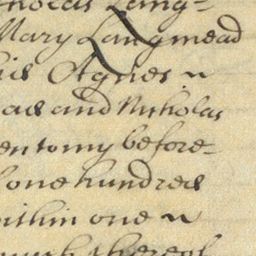 Nicholas Lang=
Mary Langmead
his Agnes
as and Nicholas
en to my before=
one hundred
within one